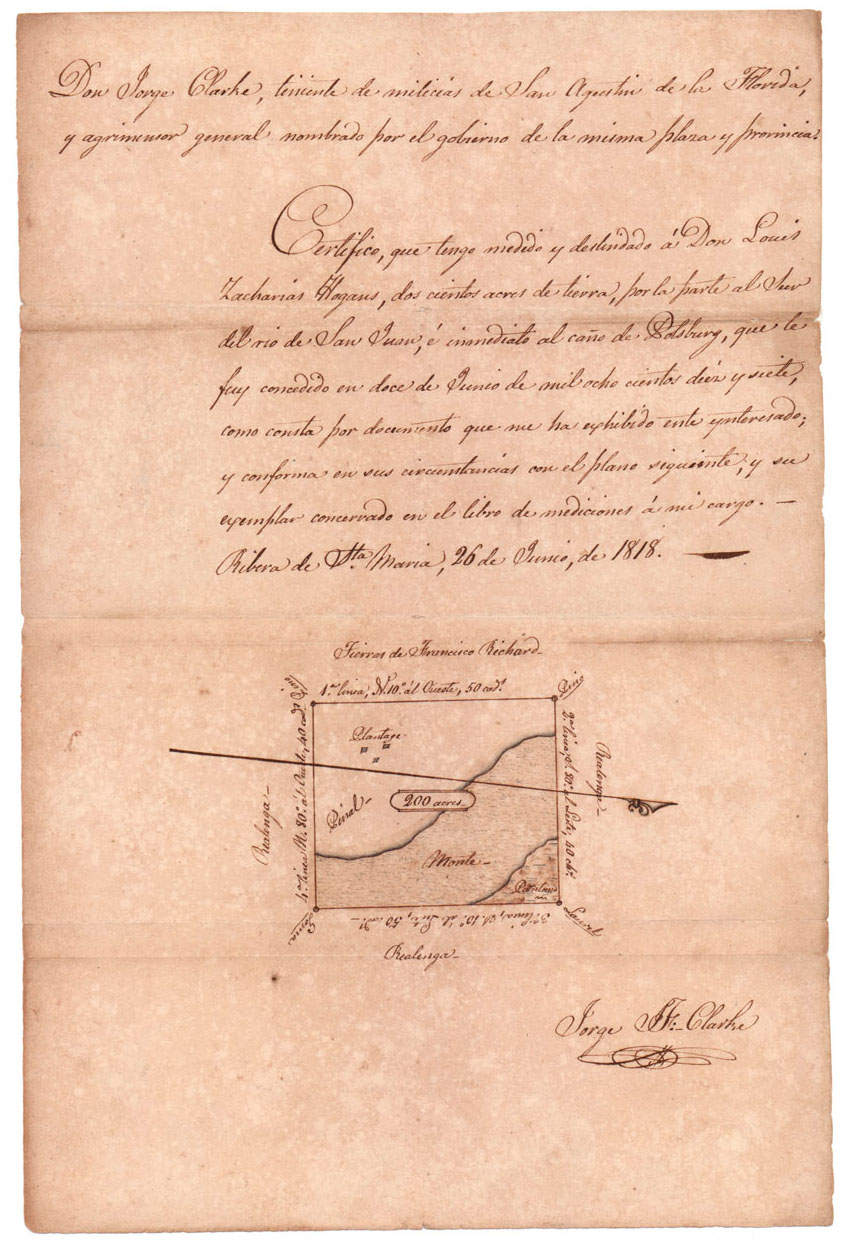 Don Jorge Clarke, teniente de milicias de San Agustin de la Florida,
y agrimensor general nombrado por el gobierno de la misma plaza y provincia.
Certifico, que tengo medido y deslindado á Don Louis
Zacharias Hogans, dos cientos acres de tierra, por la parte al Sur
del rio de San Juan, é immediato al caño de Polsburg, que le
fuy concedido en doce de Junio de mil ocho cientos diéz y siete,
como consta por documento que me ha exhibido ente ynteresado;
y conforma en sus circumstancias con el plano siguiente, y su
exemplar concervado en el libro de mediciones á mi cargo. —
Ribera de Sta. Maria, 26 de Junio, de 1818. —
Tierras de Francisco Richard
1ra. linea, N. 10º. al Oueste, 50 cads.
Pino
Pino
Plantage
Realenga
4ta. linea N. 80º. al Oueste, 40 cads.
2da. linea, S. 80º. al Leste, 40 cds.
Realenga
200 acres
Pinal
Monte
Pantano
Goma
Laurel
3ra. linea, S. 10º. al Leste, 50 cads.
Realenga
Jorge J. F. Clarke